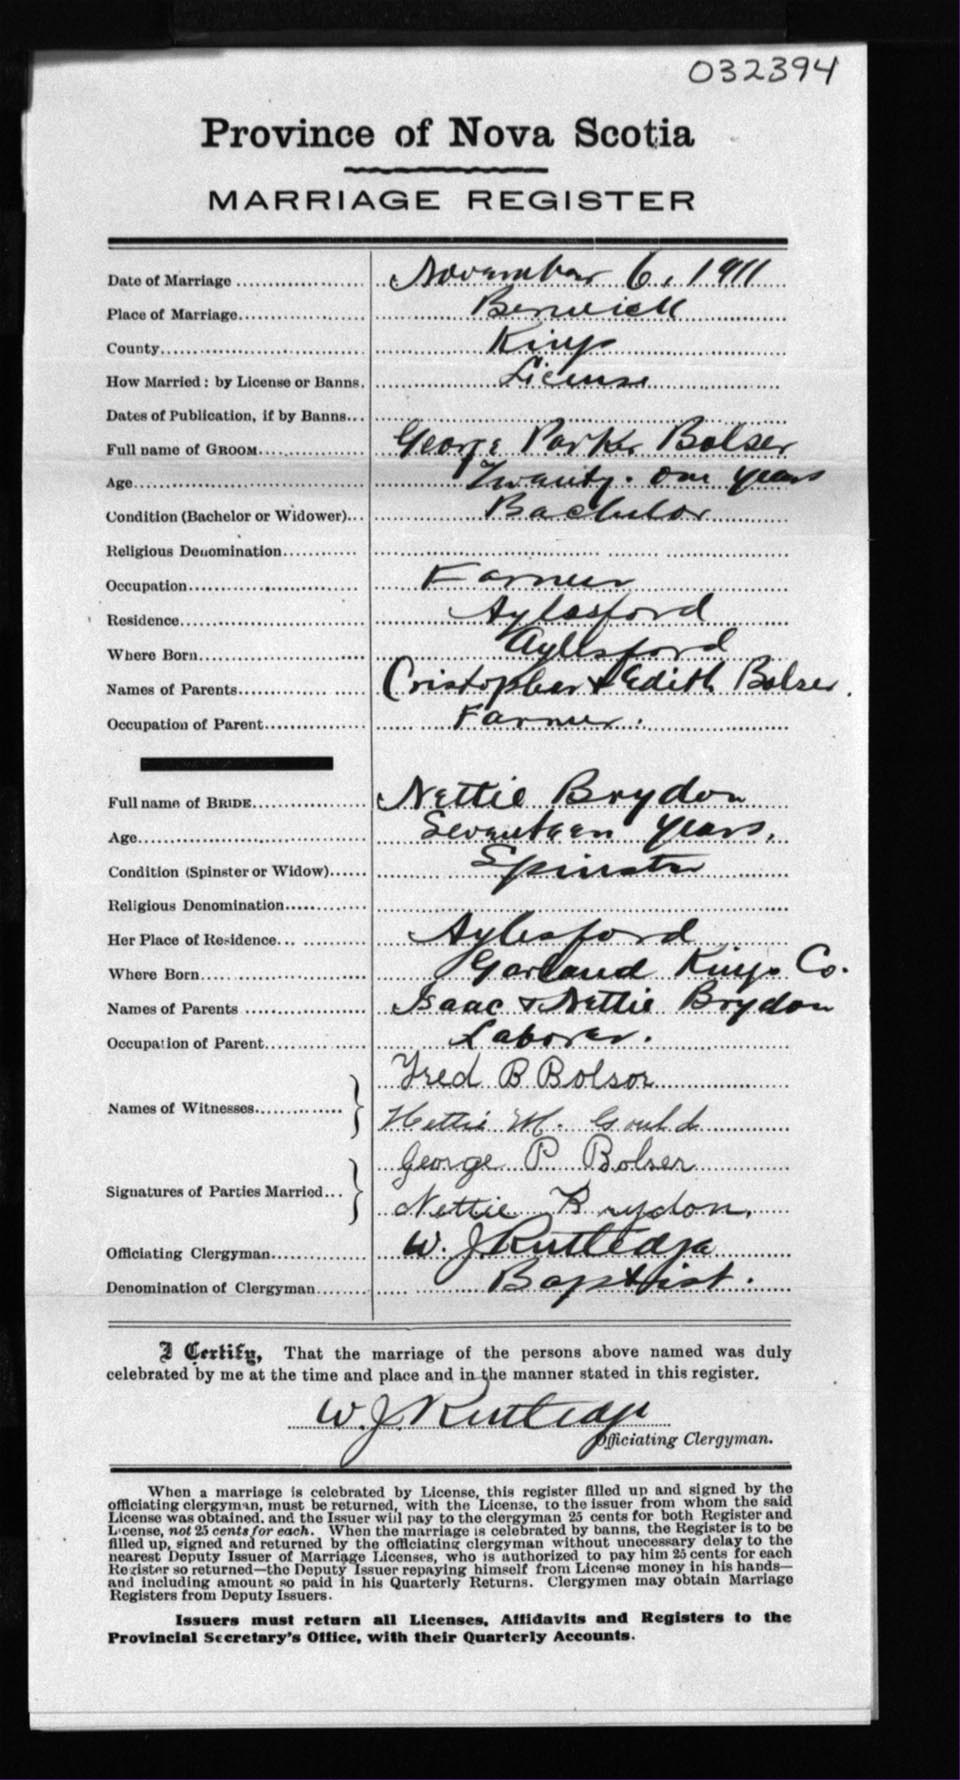 032394
Province of Nova Scotia
MARRIAGE REGISTER
Date of Marriage November 6, 1911
Place of Marriage Berwick
County Kings
How Married: by License or Banns. License
Dates of Publication, if by Banns
Full name of GROOM George Parker Bolser
Age Twenty-one years
Condition (Bachelor or Widower) Bachelor
Religious Denomination
Occupation Farmer
Residence Aylesford
Where Born Aylesford
Names of Parents Cristopher & Edith Bolser.
Occupation of Parent Farmer.
Full name of BRIDE Nettie Brydon
Age Seventeen years.
Condition (Spinster or Widow) Spinster
Religious Denomination
Her Place of Residence Aylesford
Where Born Garland Kings Co.
Names of Parents Isaac & Nettie Brydon
Occupation of Parent Laborer.
Names of Witnesses Fred B Bolsor
Hettie M. Gould
Signatures of Parties Married George P Bolser
Nettie Brydon.
Officiating Clergyman W. J. Rutledge
Denomination of Clergyman Baptist.
I Certify, That the marriage of the persons above named was duly
celebrated by me at the time and place and in the manner stated in this register.
W. J. Rutledge
Officiating Clergyman.
When a marriage is celebrated by License, this register filled up and signed by the
officiating clergyman, must be returned, with the License, to the issuer from whom the said
License was obtained, and the Issuer will pay to the clergyman 25 cents for both Register and
License, not 25 cents for each. When the marriage is celebrated by banns, the Register is to be
filled up, signed and returned by the officiating clergyman without unecessary delay to the
nearest Deputy Issuer of Marriage Licenses, who is authorized to pay him 25 cents for each
Register so returned—the Deputy Issuer repaying himself from License money in his hands—
and including amount so paid in his Quarterly Returns. Clergymen may obtain Marriage
Registers from Deputy Issuers.
Issuers must return all Licenses, Affidavits and Registers to the
Provincial Secretary's Office, with their Quarterly Accounts.